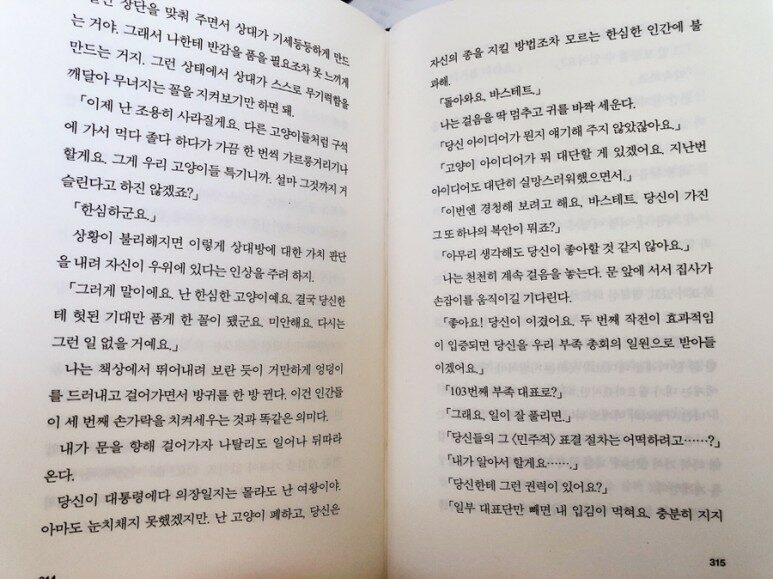 상단을 맞춰 주면서 상대가 기세등등하게 만드
는 거야. 그래서 나한테 반감을 품을 필요조차 못 느끼게
만드는 거지. 그런 상태에서 상대가 스스로 무기력함을
깨달아 무너지는 꼴을 지켜보기만 하면 돼.
「이제 난 조용히 사라질게요. 다른 고양이들처럼 구석
에 가서 먹다 졸다 하다가 가끔 한 번씩 갸르릉거리기나
할게요. 그게 우리 고양이들 특기니까. 설마 그것까지 거
슬린다고 하진 않겠죠?」
「한심하군요.」
상황이 불리해지면 이렇게 상대방에 대한 가치 판단
을 내려 자신이 우위에 있다는 인상을 주려 하지.
「그러게 말이에요. 난 한심한 고양이예요. 결국 당신한
테 헛된 기대만 품게 한 꼴이 됐군요. 미안해요. 다시는
그런 일 없을 거예요.」
나는 책상에서 뛰어내려 보란 듯이 거만하게 엉덩이
를 드러내고 걸어가면서 방귀를 한 방 뀐다. 이건 인간들
이 세 번째 손가락을 치켜세우는 것과 똑같은 의미다.
내가 문을 향해 걸어가자 나탈리도 일어나 뒤따라
온다.
당신이 대통령에다 의장일지는 몰라도 난 여왕이야.
아마도 눈치채지 못했겠지만. 난 고양이 폐하고, 당신은
314
자신의 종을 지킬 방법조차 모르는 한심한 인간에 불
과해.
「돌아와요, 바스테트.」
나는 걸음을 딱 멈추고 귀를 바짝 세운다.
「당신 아이디어가 뭔지 얘기해 주지 않았잖아요.」
「고양이 아이디어가 뭐 대단할 게 있겠어요. 지난번
아이디어도 대단히 실망스러워했으면서.」
「이번엔 경청해 보려고 해요, 바스테트. 당신이 가진
그 또 하나의 복안이 뭐죠?」
「아무리 생각해도 당신이 좋아할 것 같지 않아요.」
나는 천천히 계속 걸음을 놓는다. 문 앞에 서서 집사가
손잡이를 움직이길 기다린다.
「좋아요! 당신이 이겼어요. 두 번째 작전이 효과적임
이 입증되면 당신을 우리 부족 총회의 일원으로 받아들
이겠어요.」
「103번째 부족 대표로?」
「그래요, 일이 잘 풀리면.」
「당신들의 그 〈민주적〉 표결 절차는 어떡하려고……?」
「내가 알아서 할게요…….」
「당신한테 그런 권력이 있어요?」
「일부 대표단만 빼면 내 입김이 먹혀요. 충분히 지지
315